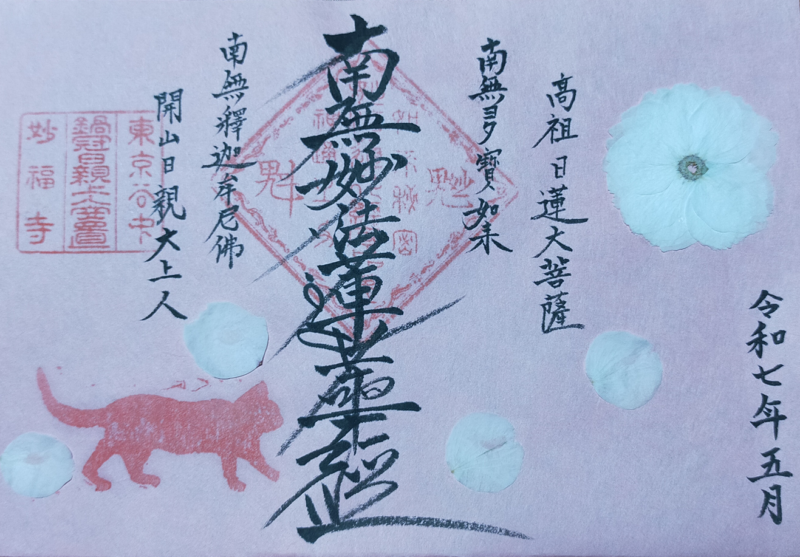 令和七年五月
高祖日蓮大菩薩
南無多寶如来
南無妙法蓮華經
南無釋迦牟尼佛
開山日親大上人
東京谷中
妙福寺
魁